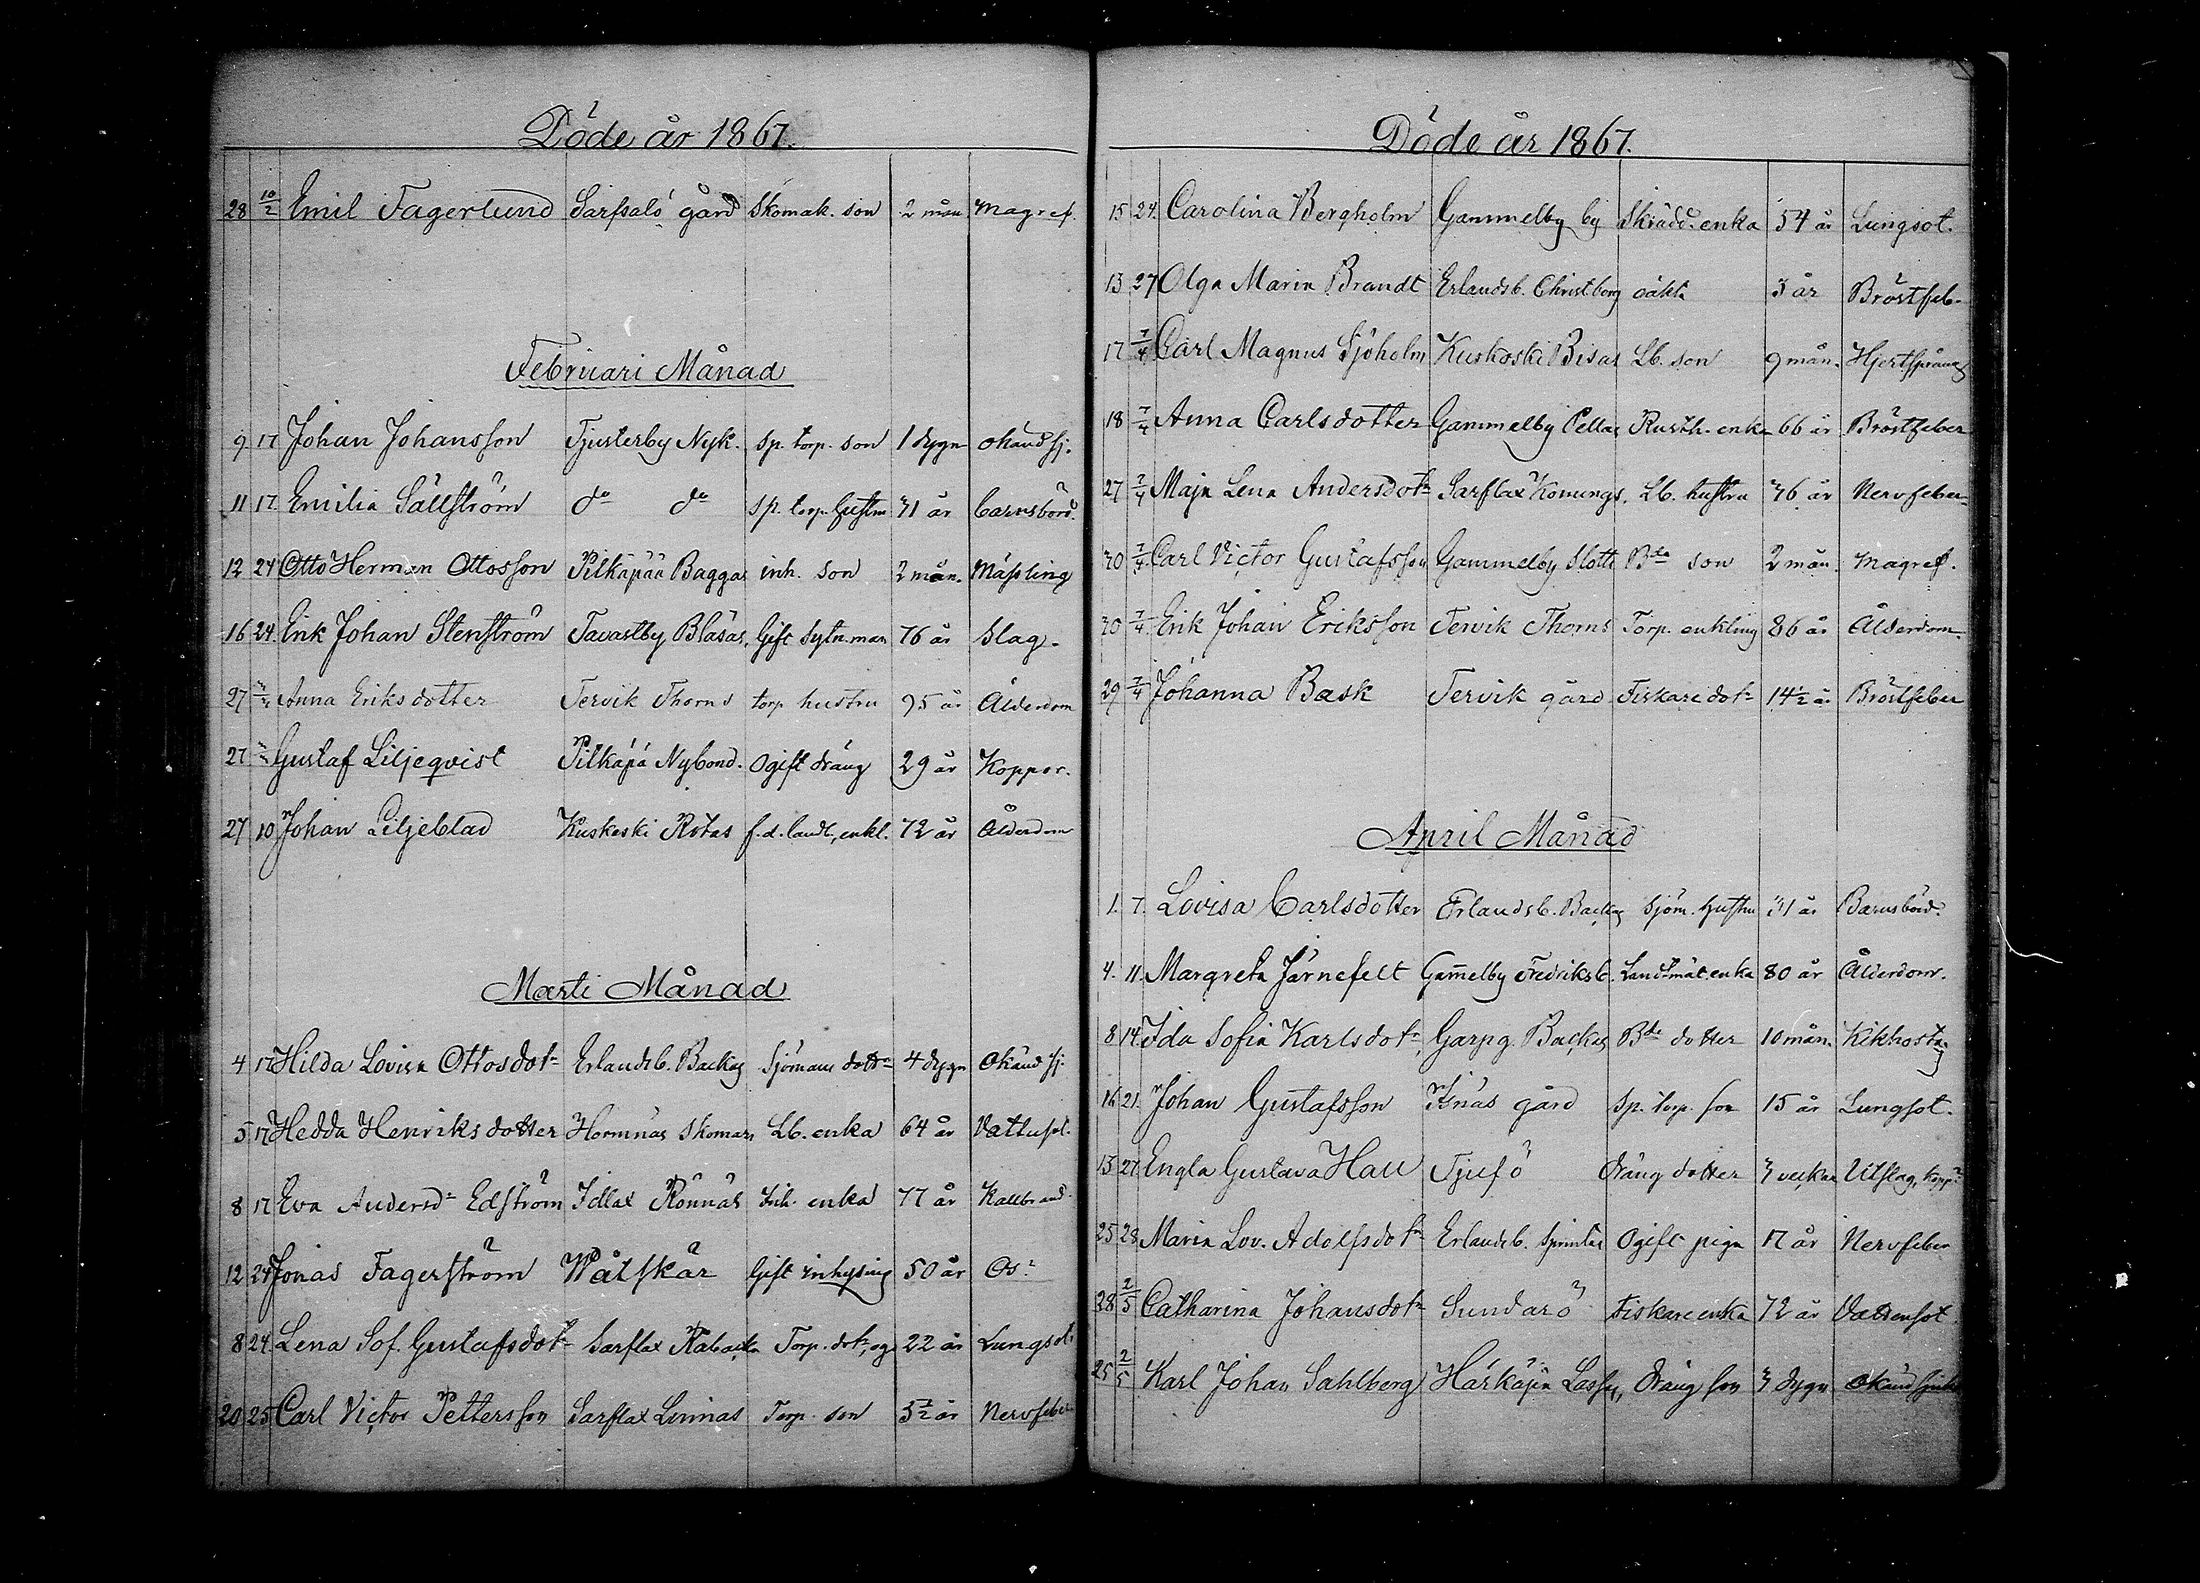 Döde år 1867.
28 10/2 Emil Fagerlund Sarfsalö gård Skomak. son 2 mån. Magref.
Februari Månad
9 17 Johan Johansson Tjusterby Nyk. sp. torp. son 1 dygn okänd sj.
11 17 Emilia Sällström do do sp. torp. hustru 31 år Barnsbörd.
12 24 Otto Herman Ottosson Pilkäpää Baggas inh. son 2 mån. Mässling
16 24 Erik Johan Stenström Tavastby Blasas, Gift sytn.man 76 år Slag.
27 Anna Eriksdotter Tervik Thorns torp. hustru 95 år Ålderdom
27 Gustaf Liljeqvist Pilkäpä Nybond. Ogift dräng 29 år Koppor.
27 10 Johan Liljeblad Kuskoski Rotas f.d. landb. enkl. 72 år Ålderdom
Marti Månad
4 17 Hilda Lovisa Ottosdotr Erlandsb. Backas Sjömans dottr 4 dygn Okänd sj.
5 17 Hedda Henriksdotter Hormnäs Skomars Lb. enka 64 år Vattusot.
8 17 Eva Andersdr Edström Idlax Rönnäs Inh. enka 77 år Kallbrand.
12 24 Jonas Fagerström Våtskär Gift inhysing 50 år Os?
8 24. Lena Sof. Gustafsdotr Sarflax Torp. dotr, og 22 år Lungsot.
20 25 Carl Victor Pettersson Sarflax Linnas Torp. son 5 1/2 år Nervfeber
Döde år 1867.
15 24. Carolina Bergholm Gammelby by Skrädd. enka 54 år Lungsot.
13 27 Olga Maria Brandt Erlandsb. Christberg oäkta 3 år Bröstfeb.
17 7/4 Carl Magnus Sjöholm Kuskoski Bisas Lb. son 9 mån. Hjertsprång
18 7/4 Anna Carlsdotter Gammelby Pellas Rusth. enka 66 år Bröstfeber
27 7/4 Maja Lena Andersdotr Sarflax Konungs, Lb. hustru 36 år Nervfeber
30 7/4 Carl Victor Gustafsson Gammelby Slotts Bde son 2 mån. Magref.
30 7/4 Erik Johan Eriksson Tervik Thorns Torp. enkling 86 år Ålderdom.
29 7/4 Johanna Bask Tervik gård Fiskare dotr 14 1/2 år Bröstfeber
April Månad
1. 7. Lovisa Carlsdotter Erlandsb. Backas Sjöm. hustru 31 år Barnsbörd.
4. 11. Margreta Järnefelt Gamelby Fredriksb. Landtmät. enka 80 år Ålderdom.
8 14. Ida Sofia Karlsdotr, Garpg. Backas Bde dotter 10 mån. Kikhosta
16 21. Johan Gustafsson gård Sp. torp. son 15 år Lungsot.
13 27. Engla Gustava Hall Tjufö Dräng dotter 3 veckor Utslag, kopp?
25 28 Maria Lov. Adolfsdotr Erlandsb. Ogift piga 17 år Nervfeber
28 2/5 Catharina Johansdotr Sundarö Fiskare enka 72 år Vattensot
25 2/5 Karl Johan Sahlberg Härkäpä Lasses, Dräng son 3 dygn Okänd sjukd